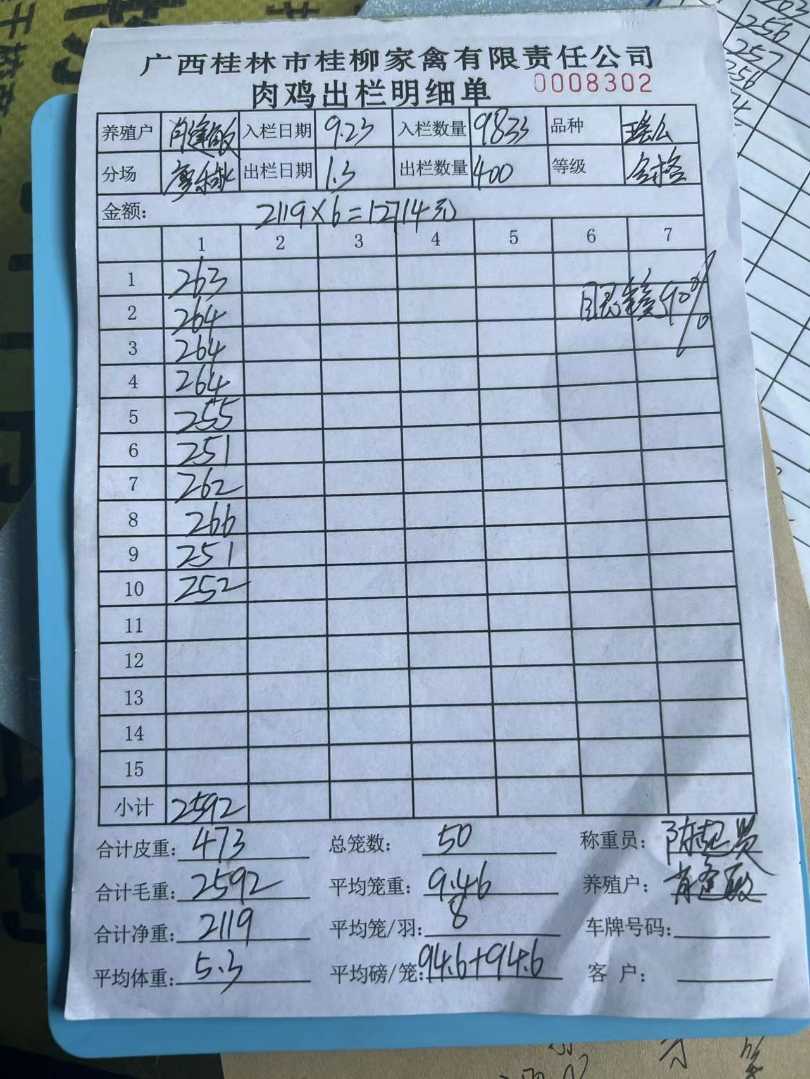 广西桂林市桂柳家禽有限责任公司
肉鸡出栏明细单 0008302
养殖户 肖逢敏 入栏日期 9.23 入栏数量 9833 品种 瑶公
分场 出栏日期 1.3 出栏数量 400 等级 合格
金额: 2119×6=12714元
1 2 3 4 5 6 7
1 263
2 264 90%
3 264
4 264
5 255
6 251
7 262
8 266
9 251
10 252
11
12
13
14
15
小计 2592
合计皮重: 473 总笼数: 50 称重员:
合计毛重: 2592 平均笼重: 9.46 养殖户: 肖逢敏
合计净重: 2119 平均笼/羽: 8 车牌号码:
平均体重: 5.3 平均磅/笼: 94.6+94.6 客户: